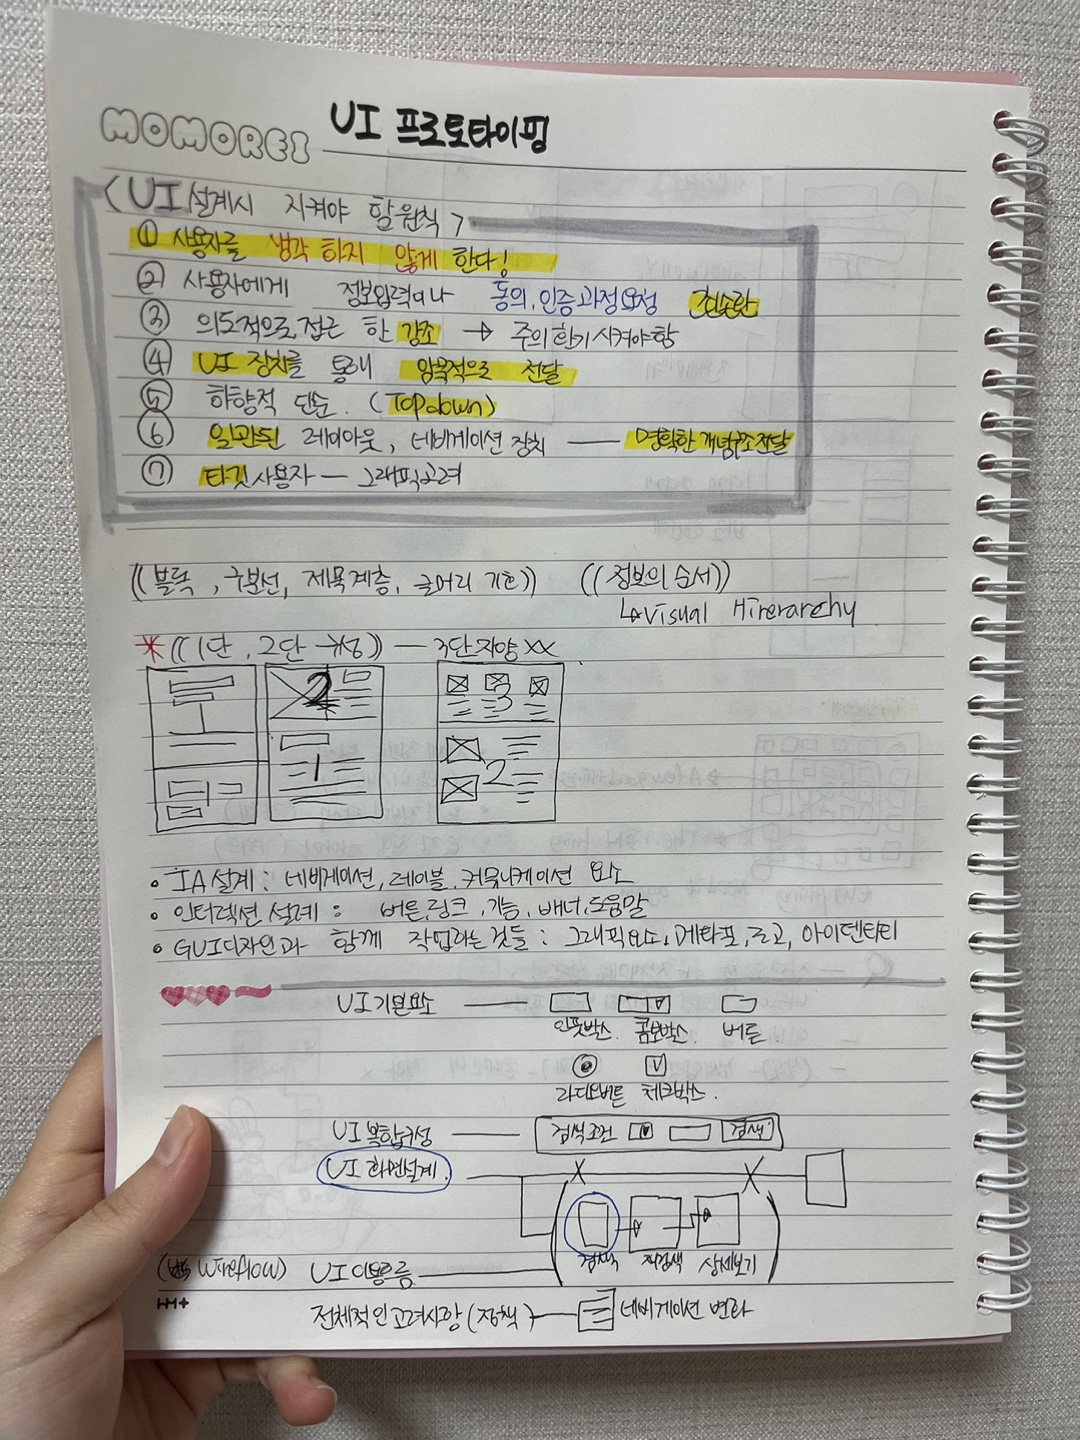 MOMOREI UI 프로토타이핑
<UI 설계시 지켜야 할 원칙>
① 사용자를 생각 하지 않게 한다!
② 사용자에게 정보입력이나 동의, 인증과정요청 최소한
③ 의도적으로 접근 한 강조 → 주의 환기 시켜야함
④ UI 장치를 통해 암묵적으로 전달
⑤ 하향적 단순. (Topdown)
⑥ 일관된 레이아웃, 네비게이션 장치 — 명확한 개념구조전달
⑦ 타깃 사용자 — 그래픽고려
((블록, 구분선, 제목계층, 글머리 기호)) ((정보의 순서))
↳ Visual Hirerarchy
* ((1단, 2단 구성)) — 3단지양 XX
2 3
1 2
• IA설계: 네비게이션, 레이블, 커뮤니케이션 요소
• 인터렉션 설계: 버튼, 링크, 기능, 배너, 도움말
• GUI디자인과 함께 작업하는것들: 그래픽요소, 메타포, 로고, 아이덴티티
UI기본요소 — 인풋박스. 콤보박스. 버튼.
라디오버튼 체크박스.
UI 복합구성 — 검색조건 검색
UI 화면설계.
검색 재검색 상세보기
wireflow) UI이용흐름
전체적인고려사항(정책) — 네비게이션 변화